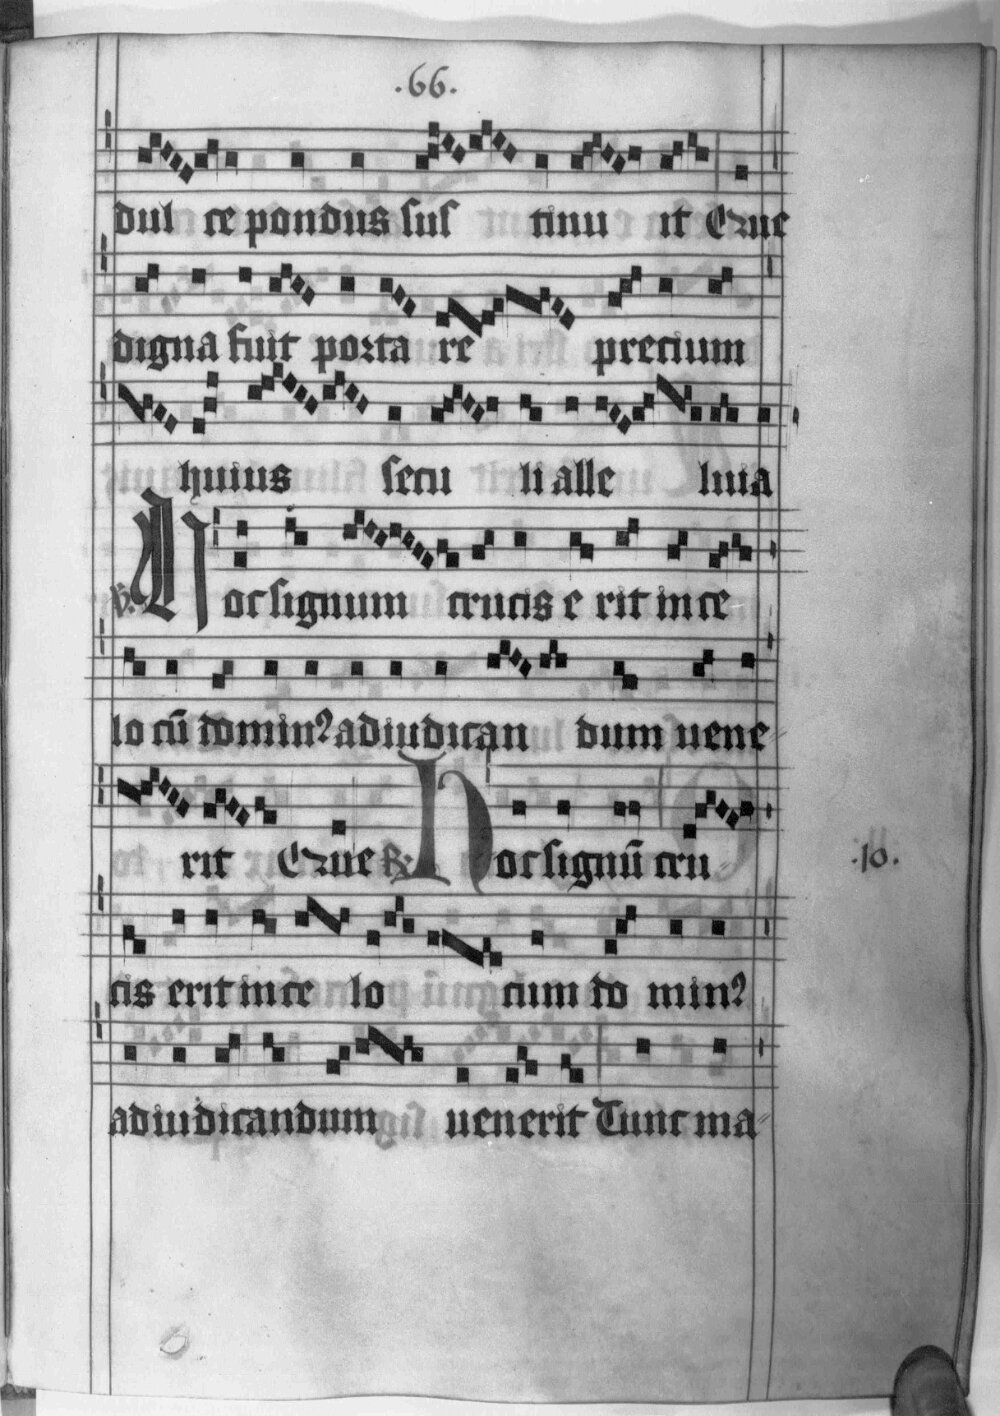 .66.
dul ce pondus sus tinu it Que
digna fuit porta re precium
huius secu li alle luia
V. Hoc signum crucis e rit in ce
lo cũ domin⁹ ad iudican dum uene
rit Que R. Hoc signũ cru
.10.
cis erit in ce lo cum do min⁹
ad iudicandum uenerit Tunc ma